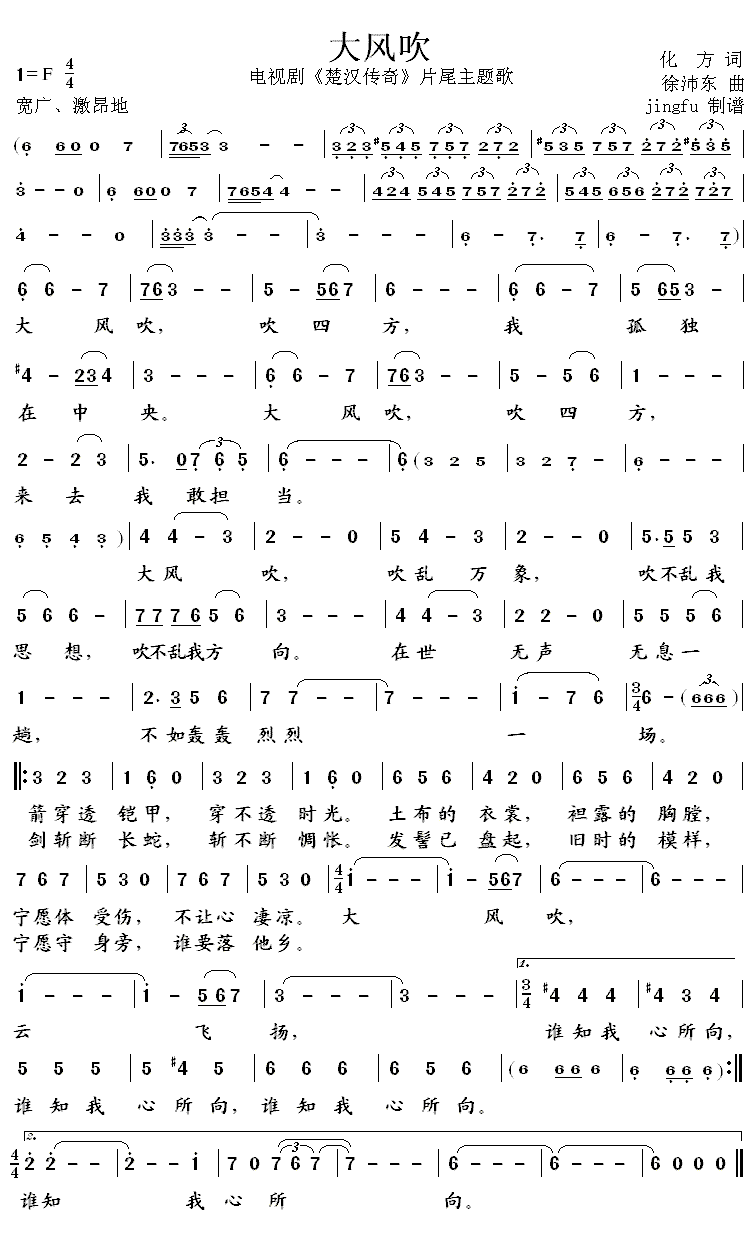 大风吹
1=F 4/4
电视剧《楚汉传奇》片尾主题歌
化 方 词
徐沛东 曲
宽广、激昂地
jingfu 制谱
(6 6 0 0 7 | 7 6 5 3 3 - - | 3 2 3 #5 4 5 7 5 7 2 7 2 | #5 3 5 7 5 7 2 7 2 #5 3 5 |
3 - - 0 | 6 6 0 0 7 | 7 6 5 4 4 - - | 4 2 4 5 4 5 7 5 7 2 7 2 | 5 4 5 6 5 6 2 7 2 7 2 7 |
4 - - 0 | 3 3 3 3 - - | 3 - - - | 6 - 7. 7 | 6 - 7. 7)
6 6 - 7 | 7 6 3 - - | 5 - 5 6 7 | 6 - - - | 6 6 - 7 | 5 6 5 3 - |
大 风 吹, 吹 四 方, 我 孤 独
#4 - 2 3 4 | 3 - - - | 6 6 - 7 | 7 6 3 - - | 5 - 5 6 | 1 - - - |
在 中 央。 大 风 吹, 吹 四 方,
2 - 2 3 | 5. 0 7 6 5 | 6 - - - | 6 (3 2 5 | 3 2 7 - | 6 - - - |
来 去 我 敢担 当。
6 5 4 3) | 4 4 - 3 | 2 - - 0 | 5 4 - 3 | 2 - - 0 | 5. 5 5 3 |
大 风 吹, 吹乱 万 象, 吹不乱我
5 6 6 - | 7 7 7 6 5 6 | 3 - - - | 4 4 - 3 | 2 2 - 0 | 5 5 5 6 |
思 想, 吹不乱我方 向。 在世 无声 无息一
1 - - - | 2. 3 5 6 | 7 7 - - | 7 - - - | 1 - 7 6 | 3/4 6 - (6 6 6) |
趟, 不如轰轰 烈烈 一 场。
‖: 3 2 3 | 1 6 0 | 3 2 3 | 1 6 0 | 6 5 6 | 4 2 0 | 6 5 6 | 4 2 0 |
箭穿透 铠甲, 穿不透 时光。 土布的 衣裳, 袒露的 胸膛,
剑斩断 长蛇, 斩不断 惆怅。 发髻已 盘起, 旧时的 模样,
7 6 7 | 5 3 0 | 7 6 7 | 5 3 0 | 4/4 1 - - - | 1 - 5 6 7 | 6 - - - | 6 - - - |
宁愿体 受伤, 不让心 凄凉。 大 风 吹,
宁愿守 身旁, 谁要落 他乡。
1.
1 - - - | 1 - 5 6 7 | 3 - - - | 3 - - - | 3/4 #4 4 4 | #4 3 4 |
云 飞 扬, 谁知我 心所向,
5 5 5 | 5 #4 5 | 6 6 6 | 6 5 6 | (6 6 6 6 | 6 6 6 6) :‖
谁知我 心所向, 谁知我 心所向。
2.
4/4 2 2 - - | 2 - - 1 | 7 0 7 6 7 | 7 - - - | 6 - - - | 6 - - - | 6 0 0 0 ‖
谁知 我 心 所 向。